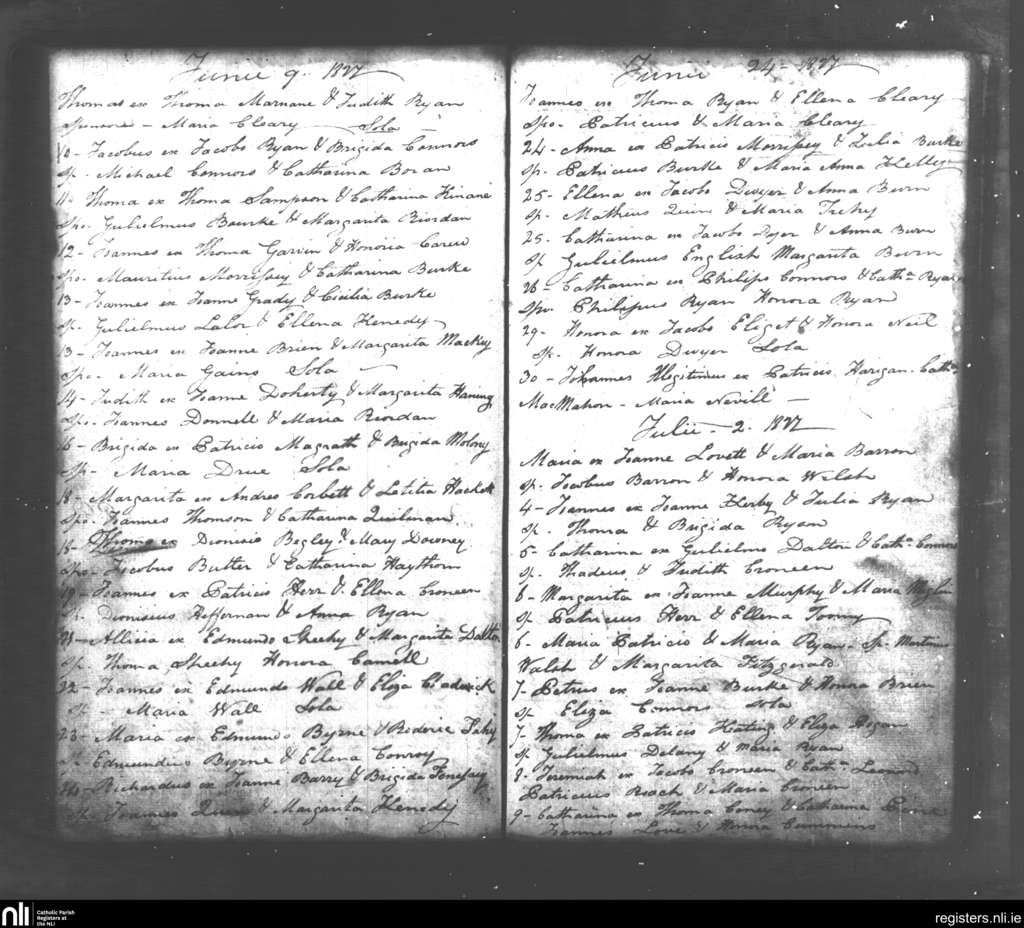 Junii 9. 1827
Thomas ex Thoma Marnane & Judith Ryan
Sponsore - Maria Cleary Sola
10 - Jacobus ex Jacobo Ryan & Brigida Connors
Sp. Michael Connors & Catharina Boran
11 - Thoma ex Thoma Sampson & Catharina Kinane
Spo. Gulielmus Bourke & Margarita Riordan
12 - Joannes ex Thoma Garvin & Honoria Carew
Spo - Mauritius Morrissey & Catharina Burke
13 - Joannes ex Joanne Grady & Cicilia Burke
Sp. Gulielmus Lalor & Ellena Kenedy
13 - Joannes ex Joanne Brien & Margarita Mackey
Spo - Maria Gains Sola
14 - Judith ex Joanne Doherty & Margarita Haning
Spo. Joannes Donnell & Maria Riordan
16 - Brigida ex Patricio Magrath & Brigida Molony
Sp. - Maria Drue Sola
18 - Margarita ex Andreo Corbett & Letitia Hackett
Spo. Joannes Thomson & Catharina Quilman
18 - Thoma ex Dionisio Begley & Mary Downey
Spo - Jacobus Butler & Catharina Haythorn
19 - Joannes ex Patricio Herr & Ellena Croneen
Sp. Dionisius Heffernan & Anna Ryan
21 - Allicia ex Edmundo Sheehy & Margarita Dalton
Sp. Thoma Sheehy Honora Camell
22 - Joannes ex Edmundo Wall & Eliza Chadwick
Sp - Maria Wall Sola
23 - Maria ex Edmundo Byrne & Roderic Fahy
Sp. Edmundus Byrne & Ellena Conroy
24 - Richardus ex Joanne Barry & Brigida
Sp. Joannes & Margarita Kenedy
Junii 24 - 1827
Joannes ex Thoma Ryan & Ellena Cleary
Spo - Patricius & Maria Cleary
24 - Anna ex Patricio Morrissey & Burke
Sp. Patricius Burke & Maria Anna Kelley
25 - Ellena ex Jacobo Dwyer & Anna Burn
Sp. Matheus Quin & Maria Trehy
25. Catharina ex Jacobo Dyer & Anna Burn
Sp Gulielmus English Margarita Burn
26 Catharina ex Philipo Connors & Cathna Ryan
Spo Philipus Ryan Honora Ryan
29 - Honora ex Jacobo & Honora Neil
Sp. Honora Dwyer Sola
30 - Johannes Illigitimus ex Patricio Harigan - Cathna
MacMahon - Maria Nevill -
Julii - 2. 1827
Maria ex Joanne Lovett & Maria Barron
Sp. Jacobus Barron & Honora Welsh
4 - Joannes ex Joanne Kerby & Julia Ryan
Sp. Thoma & Brigida Ryan
5 - Catharina ex Gulielmo Dalton & Cathna Connors
Sp. Thadeus & Judith Croneen
6 - Margarita ex Joanne Murphy & Maria
Sp Patricius Herr & Ellena Toomy
6 - Maria Patricio & Maria Ryan - Sp. Martinus
Walsh & Margarita Fitzgerald
7 - Petrus ex Joanne Burke & Honora Brien
Sp Eliza Connors Sola
7 - Thoma ex Patricio Keating & Eliza Regan
Sp Gulielmus Delany & Maria Ryan
8 - Jeremiah ex Jacobo Croneen & Cathna Leonard
Patricius Roach & Maria Croneen
9 - Catharina ex Thoma Comey & Catharina
Joannes Love & Honora Cummins
nli
Catholic Parish
Registers at
the NLI
registers.nli.ie